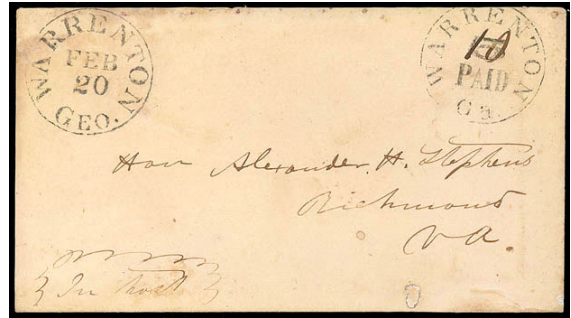 WARRENTON
FEB
20
GEO.
WARRENTON
10
PAID
Ga.
Hon Alexander. H. Stephens
Richmond
VA.
In haste